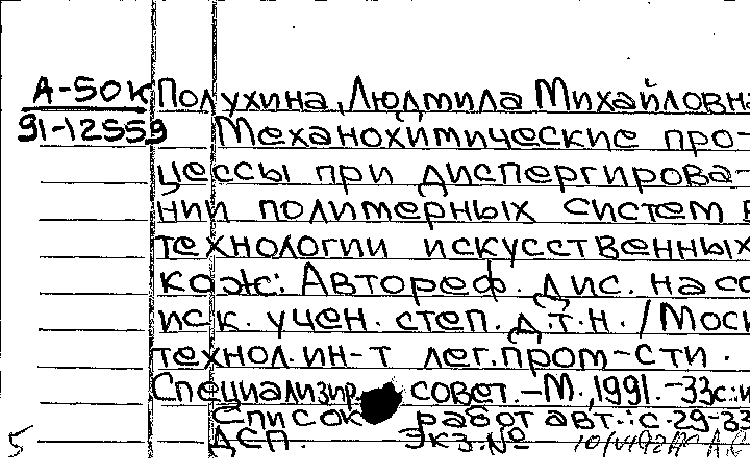 А-50к Полухина, Людмила Михайловн
91-12559 Механохимические про-
цессы при диспергирова-
нии полимерных систем в
технологии искусственных
кож: Автореф. дис. на со
иск. учен. степ. д.т.н. / Моск
технол. ин-т лег. пром-сти.
Специализир. совет. - М., 1991. - 33с.: и
Список работ авт.: с. 29-33
5 ДСП. Экз. №